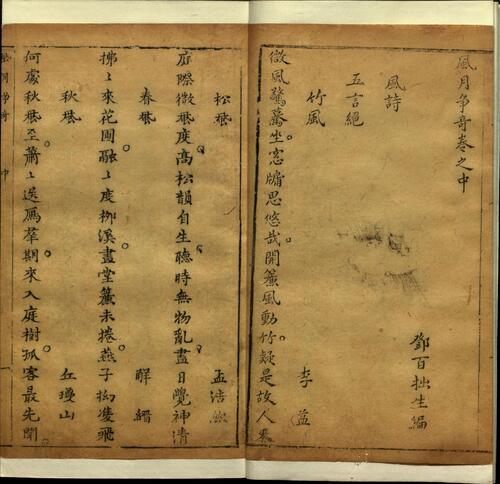 風月争奇卷之中
鄧百拙生編
風詩
五言絕
竹風
李益
微風驚暮坐窓牖思悠哉開簾風動竹疑是故人來
松風
孟浩然
庭際微風度高松韻自生聽時無物亂盡日覺神清
春風
解縉
拂〻來花圃融〻度柳溪畫堂簾未捲燕子拗雙飛
秋風
丘瓊山
何處秋風至蕭〻送鴈羣期來入庭樹孤客最先聞